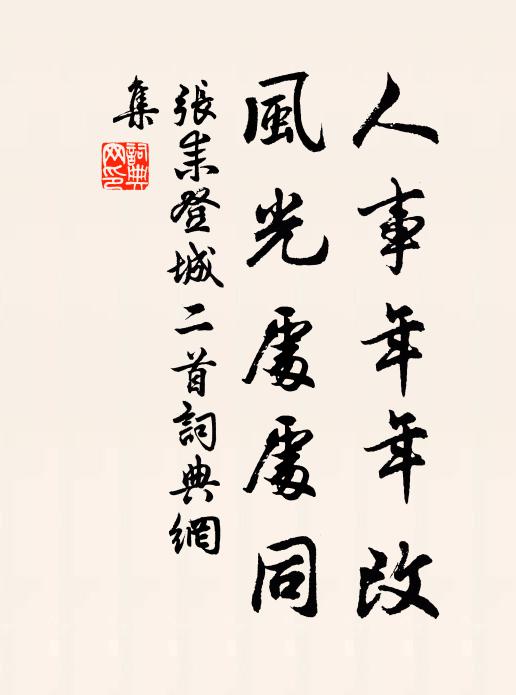 人事年年改
風光處處同
張耒登城二首詞典網
集
詞典
網印